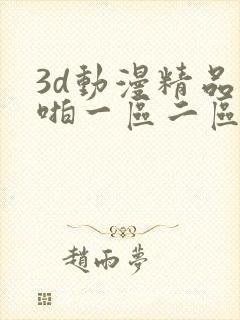 3d動漫精品
啪一區二區
趙雨夢